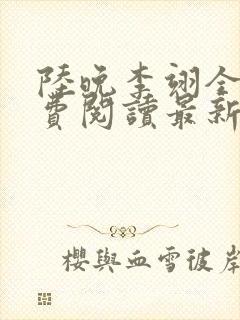 陸晚李翊全
費閱讀最新
櫻與血雪彼岸